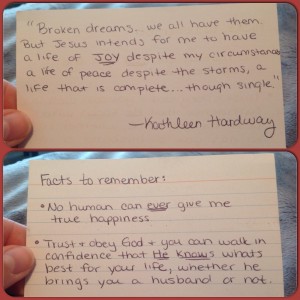 "Broken dreams... we all have them.
But Jesus intends for me to have
a life of JOY despite my circumstance
a life of peace despite the storms, a
life that is complete... though single."
—Kathleen Hardway
Facts to remember:
• No human can ever give me
true happiness
• Trust + obey God + you can walk in
confidence that He knows what's
best for your life, whether he
brings you a husband or not.